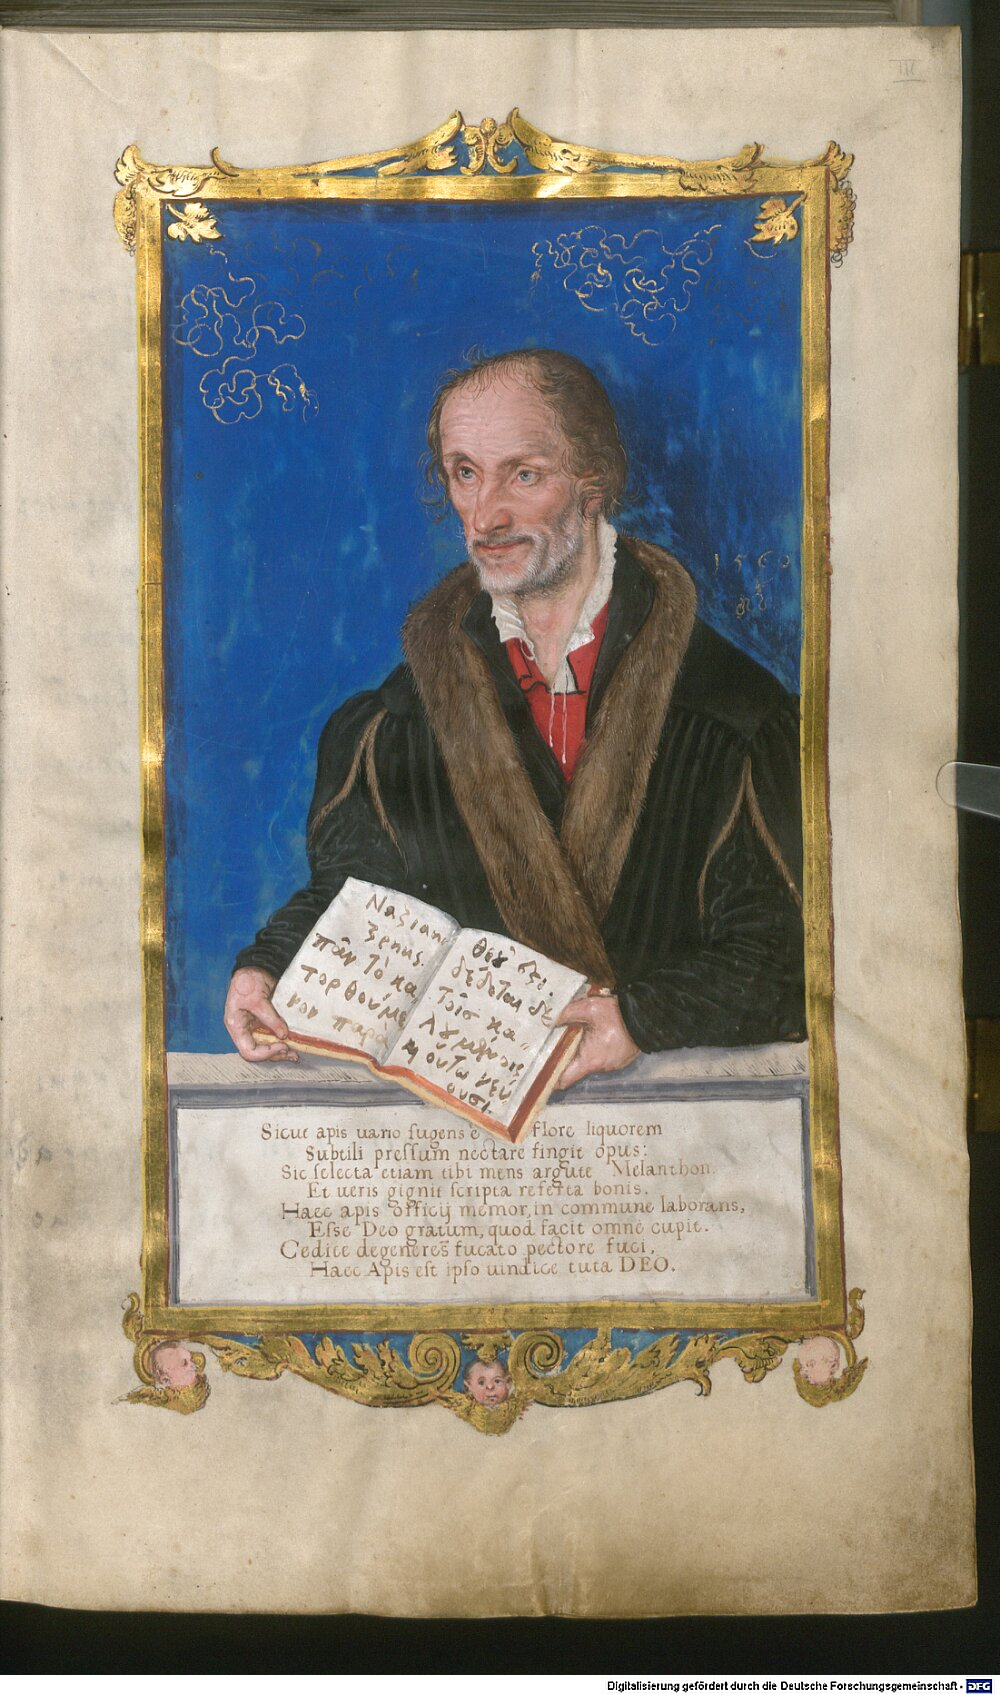 III
1560
Naziani
zenus.
πᾶν τὸ κα
τορθούμε
νον παρὰ
θεοῦ
δέδοται δὲ
τοῖσ κα„
λουμένοις
κ οὕτω νεύ
ουσι.
Sicut apis uario sugens e flore liquorem
Subtili pressum nectare fingit opus:
Sic selecta etiam tibi mens argute Melanthon.
Et ueris gignit scripta referta bonis.
Haec apis officij memor, in commune laborans,
Esse Deo gratum, quod facit omne cupit.
Cedite degeneres fucato pectore fuci,
Haec Apis est ipso uindice tuta DEO.
Digitalisierung gefördert durch die Deutsche Forschungsgemeinschaft - DFG